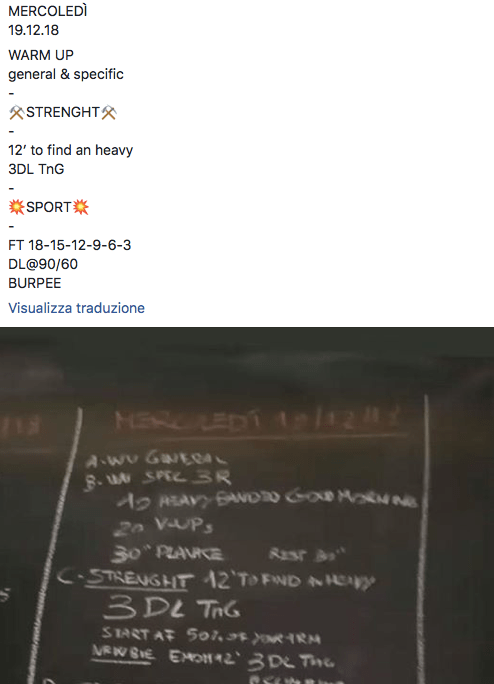 MERCOLEDÌ
19.12.18
WARM UP
general & specific
-
⚒STRENGHT⚒
-
12’ to find an heavy
3DL TnG
-
💥SPORT💥
-
FT 18-15-12-9-6-3
DL@90/60
BURPEE
Visualizza traduzione
MERCOLEDÌ 19/12/18
A-WU GENERAL
B-WU SPEC 3R
10 HEAVY BANDED GOOD MORNING
20 V-UPs
30" PLANCE REST 30"
C-STRENGHT 12' TO FIND AN HEAVY
3 DL TnG
START AT 50% OF YOUR 1RM
NEWBIE EMOM 12' 3 DL TnG